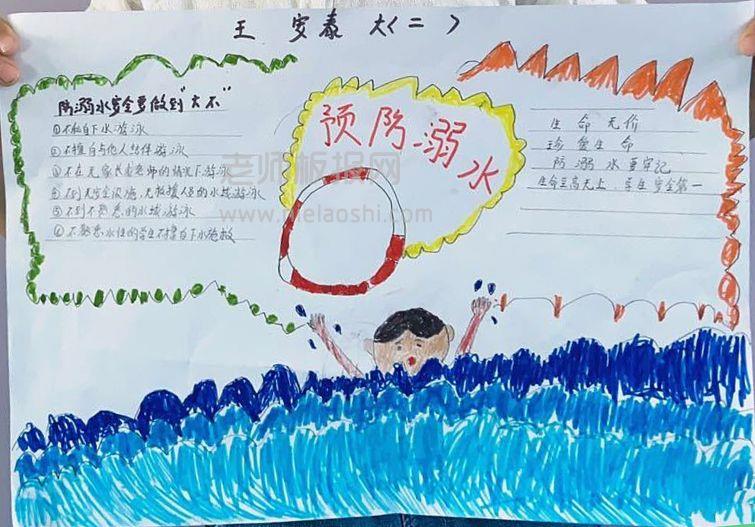 王 安泰 大(二)
防溺水安全要做到"六不"
①不私自下水游泳
②不擅自与他人结伴游泳
③不在无家长或老师的情况下游泳
④不到无安全设施、无救援人员的水域游泳
⑤不到不熟悉的水域游泳
⑥不熟悉水性的学生不擅自下水施救
预防溺水
生命无价
珍爱生命
防溺水要牢记
生命至高无上，学生安全第一
老师板报网
www.melaoshi.com